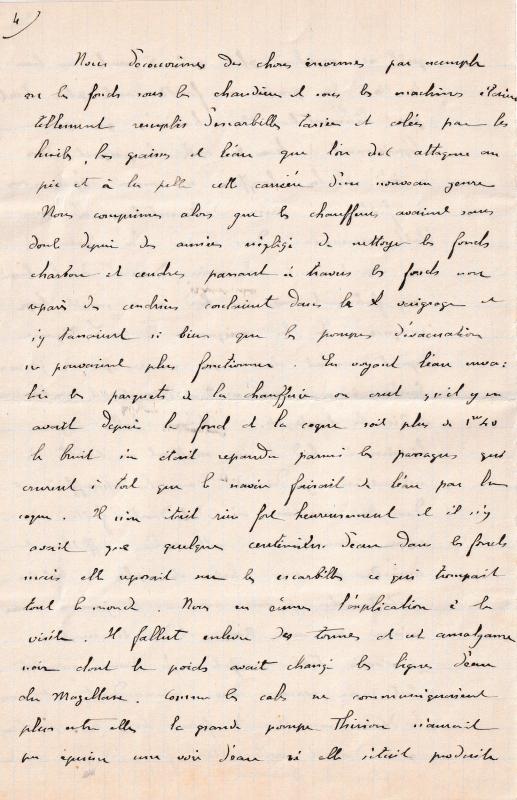 4
Nous découvrîmes des choses énormes par exemple
que les fonds sous les chaudières et sous les machines étaient
tellement remplis d'escarbilles tassées et colées par les
huiles, les graisses et l'eau que l'on dut attaquer au
pic et à la pelle cette carrière d'un nouveau genre
Nous comprîmes alors que les chauffeurs avaient sans
doute depuis des années négligé de nettoyer les fonds
charbon et cendres passant à travers les fonds non
réparés des cendriers coulaient dans le vaigrage et
s'y tassaient si bien que les pompes d'évacuation
ne pouvaient plus fonctionner. En voyant l'eau enva-
hir les parquets de la chaufferie on crut qu'il y en
avait depuis le fond de la coque soit plus de 1m40
le bruit s'en était repandu parmi les passagers qui
crurent à tort que le navire faisait de l'eau par la
coque. Il n'en était rien fort heureusement et il n'y
avait que quelques centimètres d'eau dans les fonds
mais elle reposait sur les escarbilles ce qui trompait
tout le monde. Nous en eûmes l'explication à la
visite. Il fallut enlever des tonnes de cet amalgame
noir dont le poids avait changé les lignes d'eau
du Magellan. Comme les cales ne communiquaient
plus entre elles la grande pompe Thirion n'aurait
pu épuiser une voie d'eau si elle s'était produite